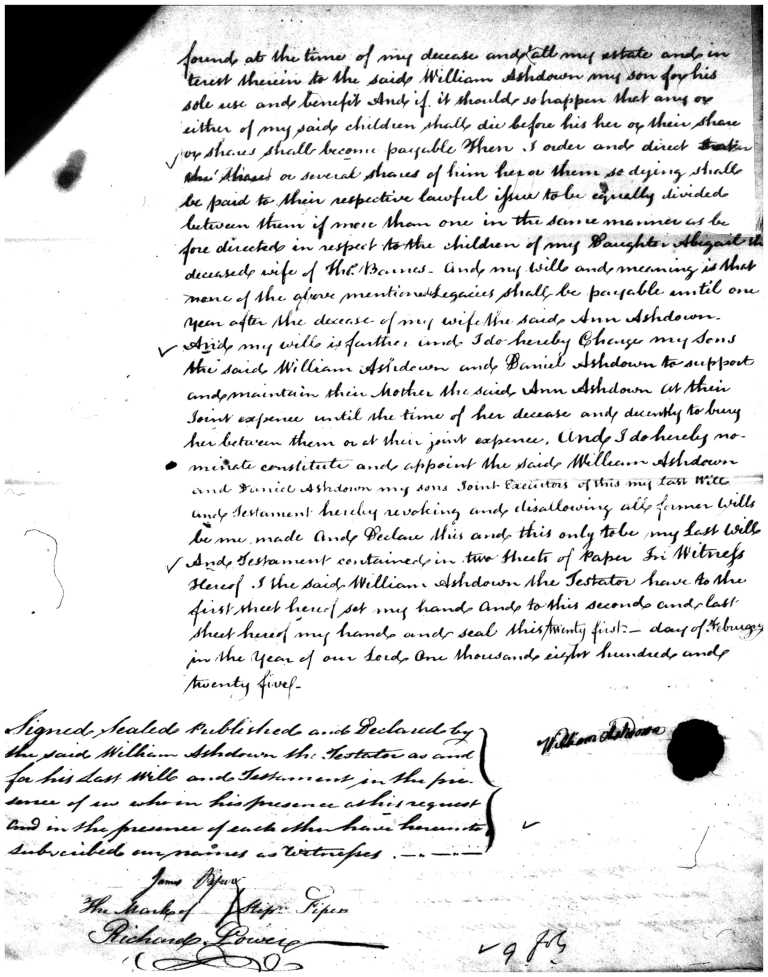 found at the time of my decease and all my estate and in
terest therein to the said William Ashdown my son for his
sole use and benefit And if it should so happen that any or
either of my said children shall die before his her or their share
or shares shall become payable Then I order and direct
or several shares of him her or them so dying shall
be paid to their respective lawful issue to be equally divided
between them if more than one in the same manner as be
fore directed in respect to the children of my Daughter Abigail the
deceased wife of Tho.s Barnes - And my will and meaning is that
none of the above mentioned Legacies shall be payable until one
Year after the decease of my wife the said Ann Ashdown -
And my will is farther and I do hereby Charge my Sons
the said William Ashdown and Daniel Ashdown to support
and maintain their Mother the said Ann Ashdown at their
Joint expence until the time of her decease and decently to bury
her between them or at their joint expence. And I do hereby no-
minate constitute and appoint the said William Ashdown
and Daniel Ashdown my sons Joint Executors of this my Last Will
and Testament hereby revoking and disallowing all former Wills
be me made And Declare this and this only to be my Last Will
And Testament contained in two Sheets of Paper In Witness
Hereof I the said William Ashdown the Testator have to the
first sheet hereof set my hand And to this second and last
sheet hereof my hand and seal this twenty first - day of Feburary
in the Year of our Lord One thousand eight hundred and
twenty five -
Signed Sealed Published and Declared by
the said William Ashdown the Testator as and
for his Last Will and Testament in the pre-
sence of us who in his presence at his request
And in the presence of each other have hereunto
subscribed our names as Witnesses. -
William Ashdown
James
The Mark of Step.n
Richard Lower
9 fo.